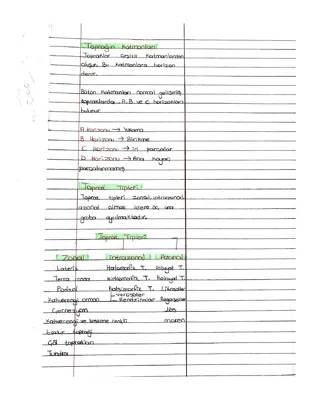 Toprağın Katmanları
Topraklar çeşitli katmanlardan
oluşur. Bu katmanlara horizon
denir.
Bütün katmanları normal gelişmiş
topraklarda A, B ve C horizonları
bulunur.
A Horizonu → Yıkama
B Horizonu → Birikme
C Horizonu → İri parçalar
D Horizonu → Ana kayaç
parçalanmamış
Toprak Tipleri
Toprak tipleri zonal, intrazonal
azonal olmak üzere üç ana
gruba ayrılmaktadır.
Toprak Tipleri
Zonal İntrazonal Azonal
Laterit Halomorfik T. Alüvyal T.
Terra rossa Hidromorfik T. Kolüvyal T.
Podzol Kalsimorfik T. Litosoller
Kahverengi orman Vertisoller
Rendzinalar Regosoller
Çernezyom Lös
Kahverengi ve kestane renkli moren
bozkır toprağı
Çöl toprakları
Tundra